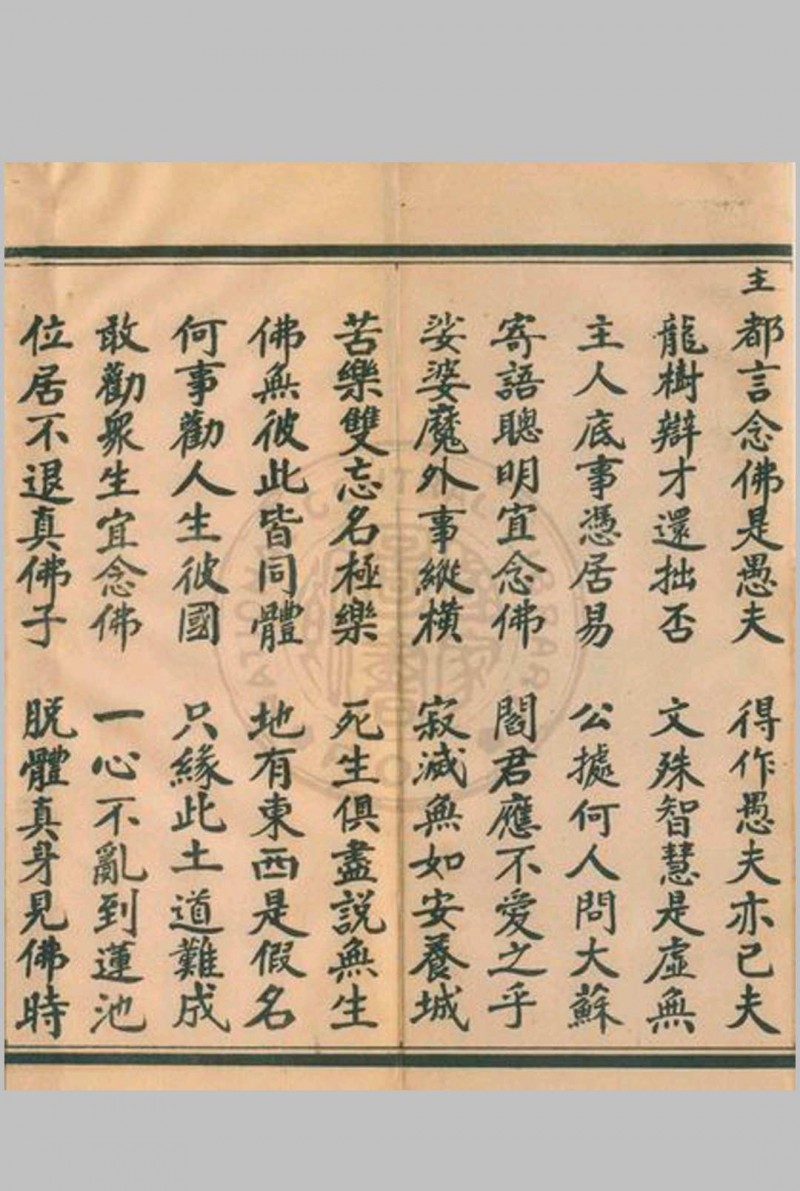 主
都言念佛是愚夫 得作愚夫亦已夫
龍樹辯才還拙否 文殊智慧是虛無
主人底事憑居易 公據何人問大蘇
寄語聰明宜念佛 閻君應不愛之乎
娑婆魔外事縱橫 寂滅無如安養城
苦樂雙忘名極樂 死生俱盡説無生
佛無彼此皆同體 地有東西是假名
何事勸人生彼國 只緣此土道難成
敢勸眾生宜念佛 一心不亂到蓮池
位居不退真佛子 脱體真身見佛時